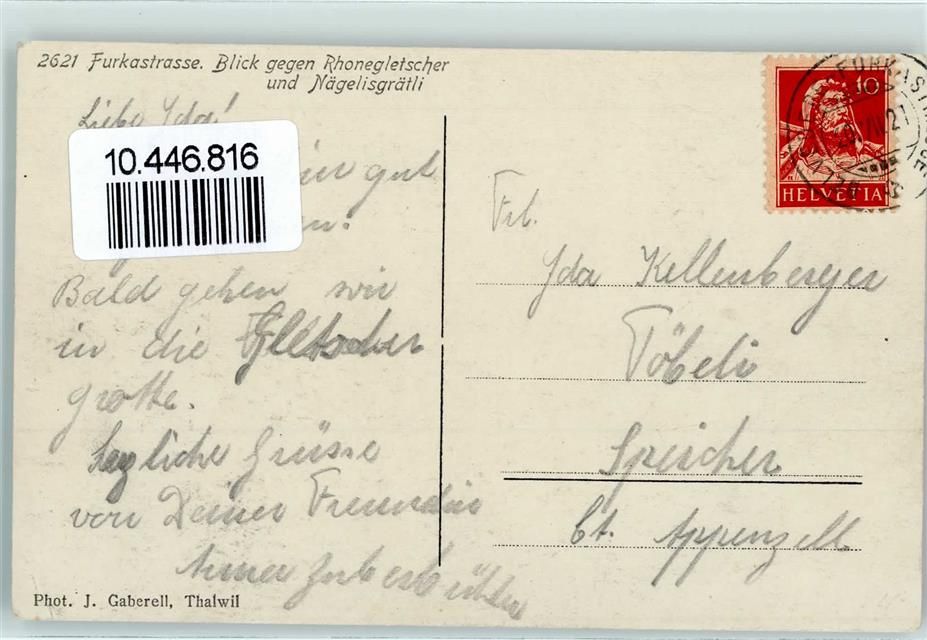 2621 Furkastrasse. Blick gegen Rhonegletscher
und Nägelisgrätli
Liebe Ida!
10.446.816
gut
Bald gehen wir
in die Gletscher
grotte.
Herzliche Grüsse
von Deiner Freundin
10
HELVETIA
21
Frl.
Ida Kellenberger
Töbeli
Speicher
Ct. Appenzell
Phot. J. Gaberell, Thalwil